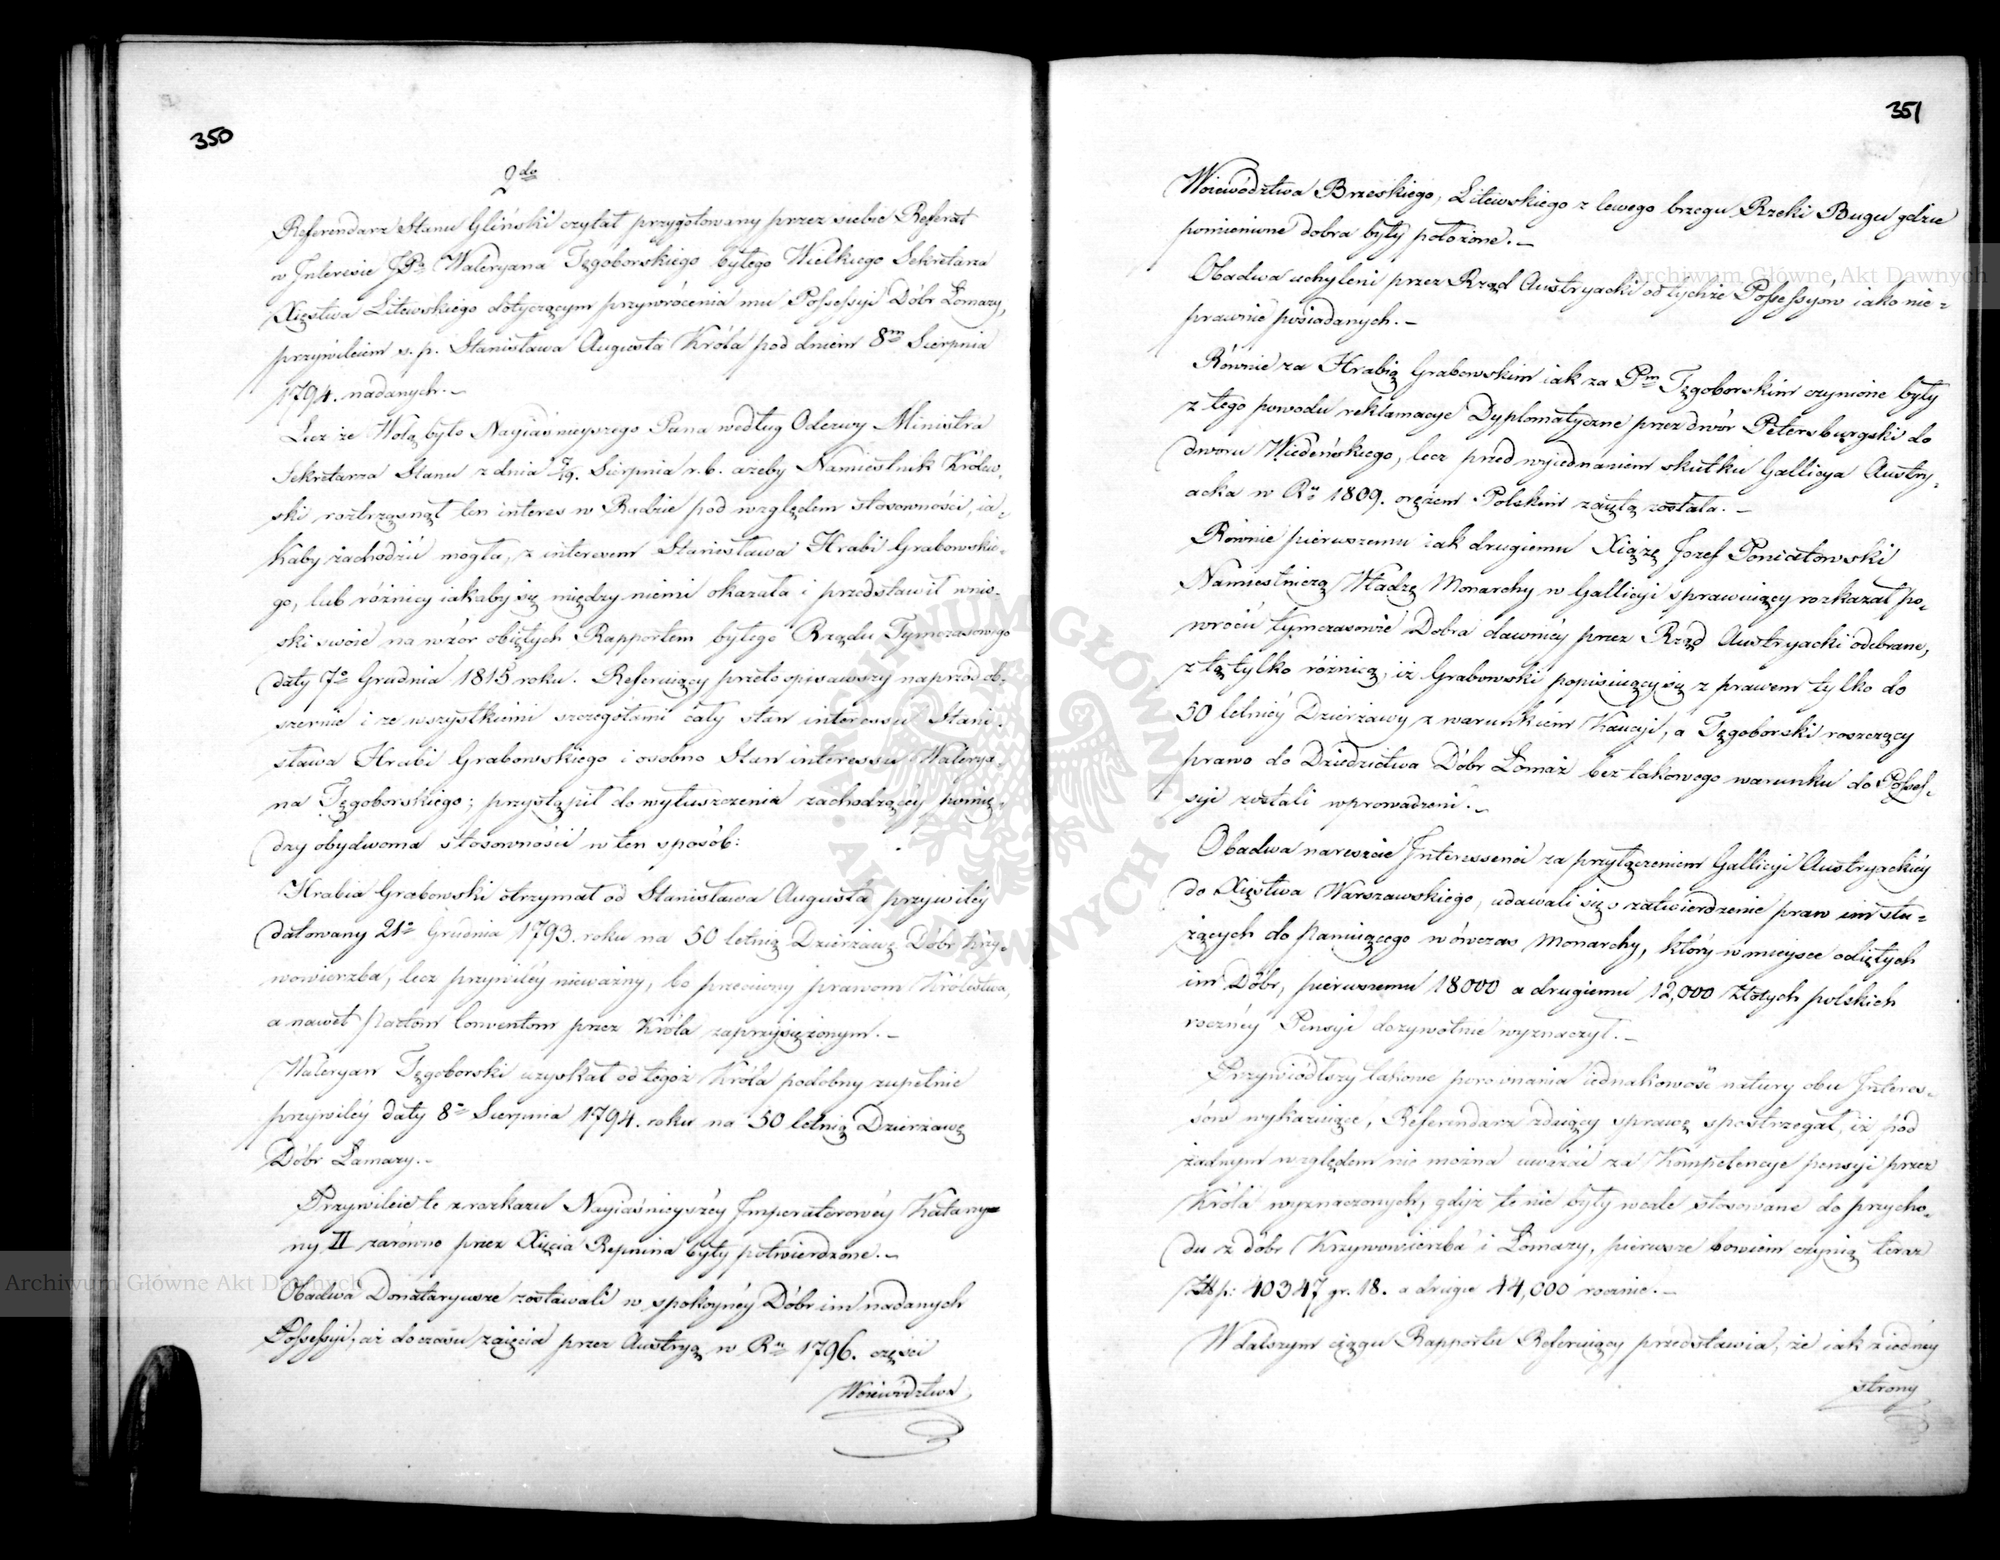 350
2do
Referendarz Stanu Gliński czytał przygotowany przez siebie Referat
w Interesie JPa Waleryana Tęgoborskiego byłego Wielkiego Sekretarza
Xięstwa Litewskiego dotyczącym przywrócenia mu Possessyi Dóbr Łomazy,
przywileiem s. p. Stanisława Augusta Króla pod dniem 8m Sierpnia
1794. nadanych.—
Lecz że Wolą było Nayiaśnieyszego Pana według Odezwy Ministra
Sekretarza Stanu z dnia 7/19. Sierpnia r. b. ażeby Namiestnik Królew-
ski roztrząsnął ten interes w Radzie pod względem stosowności, ia-
kaby zachodzić mogła, z interesem Stanisława Hrabi Grabowskie-
go, lub różnicy iakaby się między niemi okazała i przedstawił wnio-
ski swoie na wzór obiętych Rapportem byłego Rządu Tymczasowego
daty 7o Grudnia 1815 roku. Referuiący przeto opisawszy naprzód ob-
szernie i ze wszystkiemi szczegółami cały stan interessu Stani-
sława Hrabi Grabowskiego i osobno Stan interessu Walerya-
na Tęgoborskiego; przystąpił do wyłuszczenia zachodzącéy pomię-
dzy obydwoma stosowności w ten sposób:
Hrabia Grabowski otrzymał od Stanisława Augusta przywiléy
datowany 21o Grudnia 1793. roku na 50 letnią Dzierżawę Dóbr Krzy-
wowierzba, lecz przywiléy nieważny, bo przeciwny prawom Królestwa,
a nawet Pactom Conventom przez Króla zaprzysiężonym.—
Waleryan Tęgoborski uzyskał od tegoż Króla podobny zupełnie
przywiléy daty 8o Sierpnia 1794. roku na 50 letnią Dzierżawę
Dóbr Łamazy.—
Przywileie te z rozkazu Nayiaśnieyszéy Imperatorowéy Katarzy-
ny II zarówno przez Xięcia Repnina były potwierdzone.—
Obadwa Donataryusze zostawali w spokoynéy Dóbr im nadanych
Possessyi, aż do czasu zaięcia przez Austryą w Ru 1796. części
Województwa
351
Woiewództwa Brzeskiego, Litewskiego z lewego brzegu Rzeki Bugu gdzie
pomienione dobra były położone.—
Obadwa uchyleni przez Rząd Austryacki od tychże Possessyow iako nie-
prawnie posiadanych.—
Równie za Hrabią Grabowskim iak za Pm Tęgoborskim czynione były
z tego powodu reklamacye Dyplomatyczne przez dwór Petersburgski do
dworu Wiedeńskiego, lecz przed wyiednaniem skutku Gallicya Austry-
acka w Ru 1809. orężem Polskim zaiętą została.—
Równie pierwszemu iak drugiemu Xiążę Jozef Poniatowski
Namiestniczą Władzę Monarchy w Gallicyi sprawuiący rozkazał po-
wrócić tymczasowie Dobra dawniéy przez Rząd Austryacki odebrane,
z tą tylko różnicą, iż Grabowski popisuiący się z prawem tylko do
50 letniéy Dzierżawy z warunkiem Kaucyi, a Tęgoborski roszczący
prawo do Dziedzictwa Dóbr Łomaz bez takowego warunku do Posses-
syi zostali wprowadzeni.—
Obadwa nareszcie Interessenci za przyłączeniem Gallicyi Austryackiéy
do Xięstwa Warszawskiego, udawali się o zatwierdzenie praw im słu-
żących do Panuiącego wówczas Monarchy, który w mieysce odiętych
im Dóbr, pierwszemu 18000 a drugiemu 12,000 Złotych polskich
rocznéy Pensyi dożywotnie wyznaczył.—
Przywiódłszy takowe porównania iednakowość natury obu Interes-
sów wykazuiące, Referendarz zdaiący sprawę spostrzegał, iż pod
żadnym względem nie można uważać za Kompetencye pensyi przez
Króla wyznaczonych, gdyż te nie były wcale stosowane do przycho-
du z dóbr Krzywowierzba i Łomazy, pierwsze bowiem czynią teraz
Złp: 40347 gr. 18. a drugie 44,000 rocznie.—
W dalszym ciągu Rapportu Referuiący przedstawia, że iak z iednéy
strony
Archiwum Główne Akt Dawnych
Archiwum Główne Akt Dawnych
ARCHIWUM GŁÓWNE AKT DAWNYCH